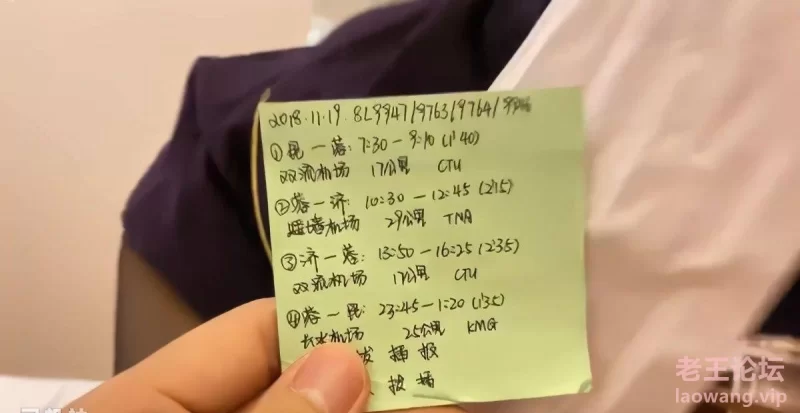 2018.11.19. 8L9947/9763/9764/
①昆一蓉: 7:30-9:10 (1:40)
双流机场 17公里 CTU
②蓉一济: 10:30-12:45 (2:15)
遥墙机场 29公里 TNA
③济一蓉: 13:50-16:25 (2:35)
双流机场 17公里 CTU
④蓉一昆: 23:45-1:20 (1:35)
长水机场 25公里 KMG
播报
播
老王论坛
laowang.vip